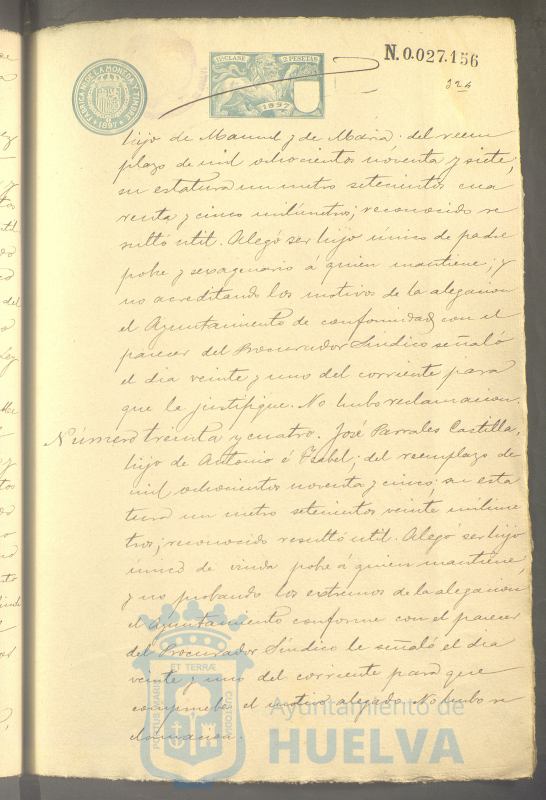 FABRICA N. DE LA MONEDA Y TIMBRE
1897
12ª CLASE 2 PESETAS
1897
N.0.027.156
324
hijo de Manuel y de Maria. del reem
plazo de mil ochocientos noventa y siete,
su estatura un metro setecientos cua
renta y cinco milimetros; reconocido re
sultó util. Alegó ser hijo único de padre
pobre y sexagenario á quien mantiene; y
no acreditando los motivos de la alegacion
el Ayuntamiento de conformidad con el
parecer del Procurador Síndico señaló
el dia veinte y uno del corriente para
que la justifique. No hubo reclamacion.
Número treinta y cuatro. José Parrales Castilla,
hijo de Antonio é Isabel; del reemplazo de
mil ochocientos noventa y cinco, su esta
tura un metro setecientos veinte milime
tros; reconocido resultó util. Alegó ser hijo
único de viuda pobre á quien mantiene,
y no probando los extremos de la alegacion
el Ayuntamiento conforme con el parecer
del Procurador Síndico le señaló el dia
veinte y uno del corriente para que
compruebe el motivo alegado. No hubo re
clamacion.
PORTUS MARIS ET TERRAE CUSTODIA
Ayuntamiento de
HUELVA